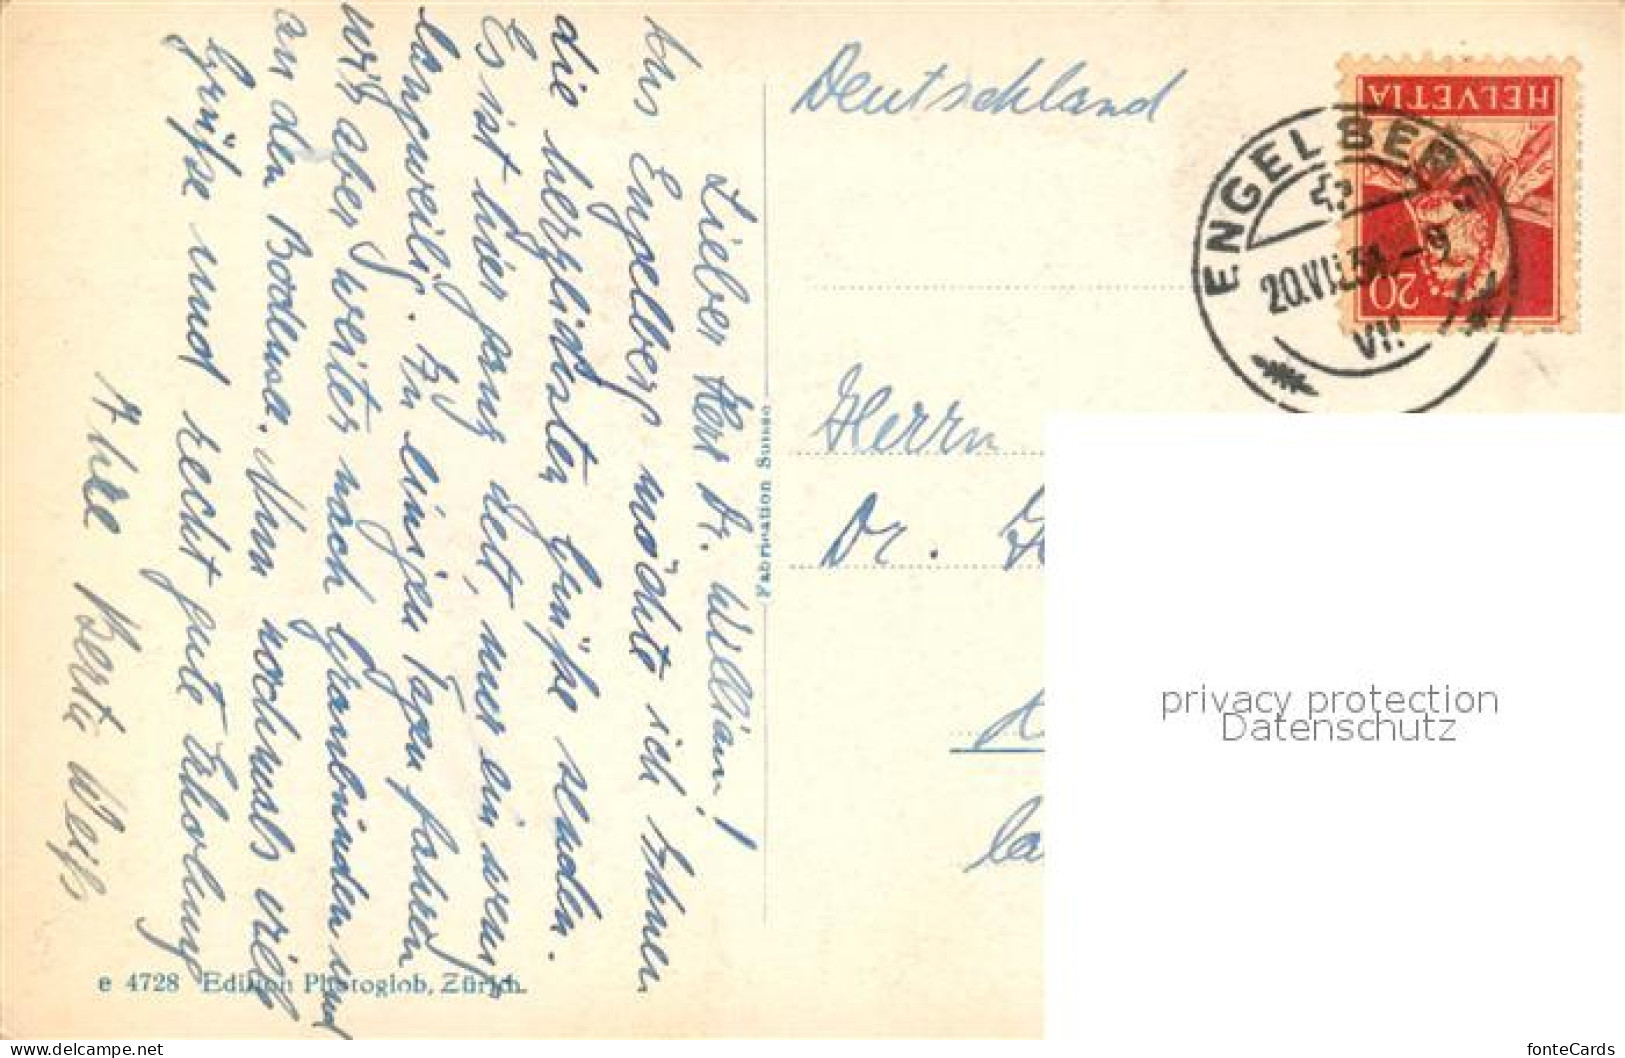 Lieber Herr Dr. William!
Aus Engelberg möchte ich Ihnen
die herzlichsten Grüße senden.
Es ist hier ganz nett, nur ein wenig
langweilig. In einigen Tagen fahren
wir aber weiter nach Graubünden und
an den Bodensee. Nun nochmals viele
Grüße und recht gute Erholung
Ihre Berta Weiß
e 4728 Edition Photoglob, Zürich.
Fabrication Suisse
Deutschland
Herrn
Dr.
HELVETIA
20
ENGELBERG
20.VII.31.-9
VII
privacy protection
Datenschutz
www.delcampe.net
fonteCards